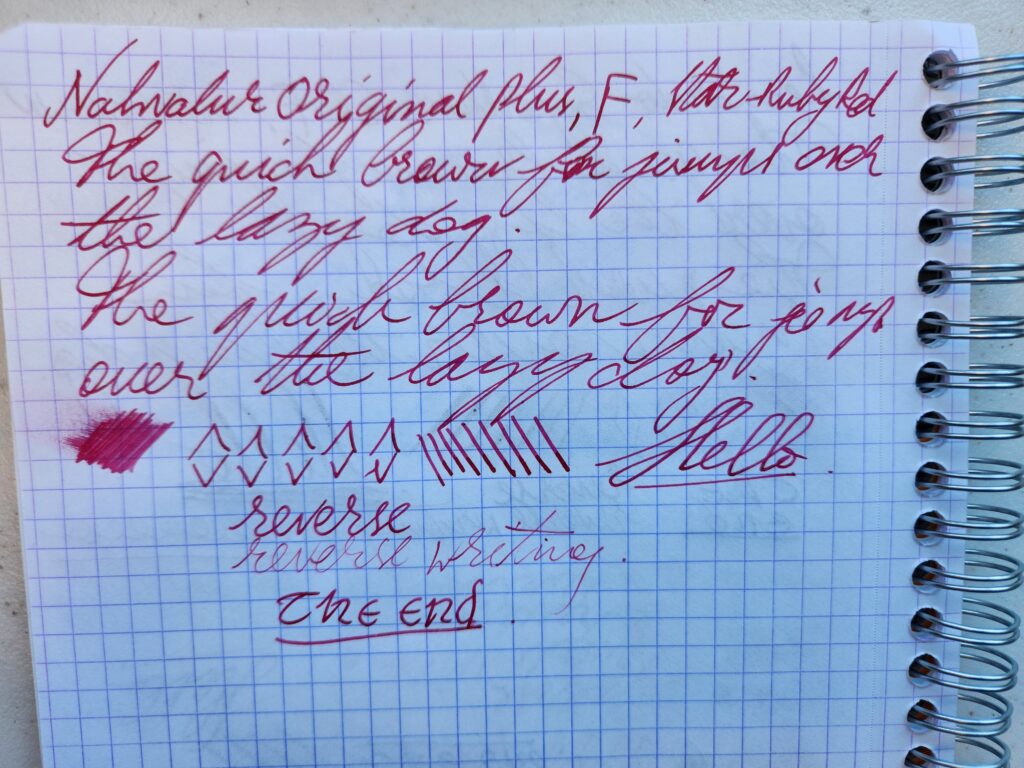 Nahvalur Original Plus, F, Ruby Red
The quick brown fox jumps over
the lazy dog.
The quick brown fox jumps
over the lazy dog.
Hello.
reverse
reverse writing.
The End.